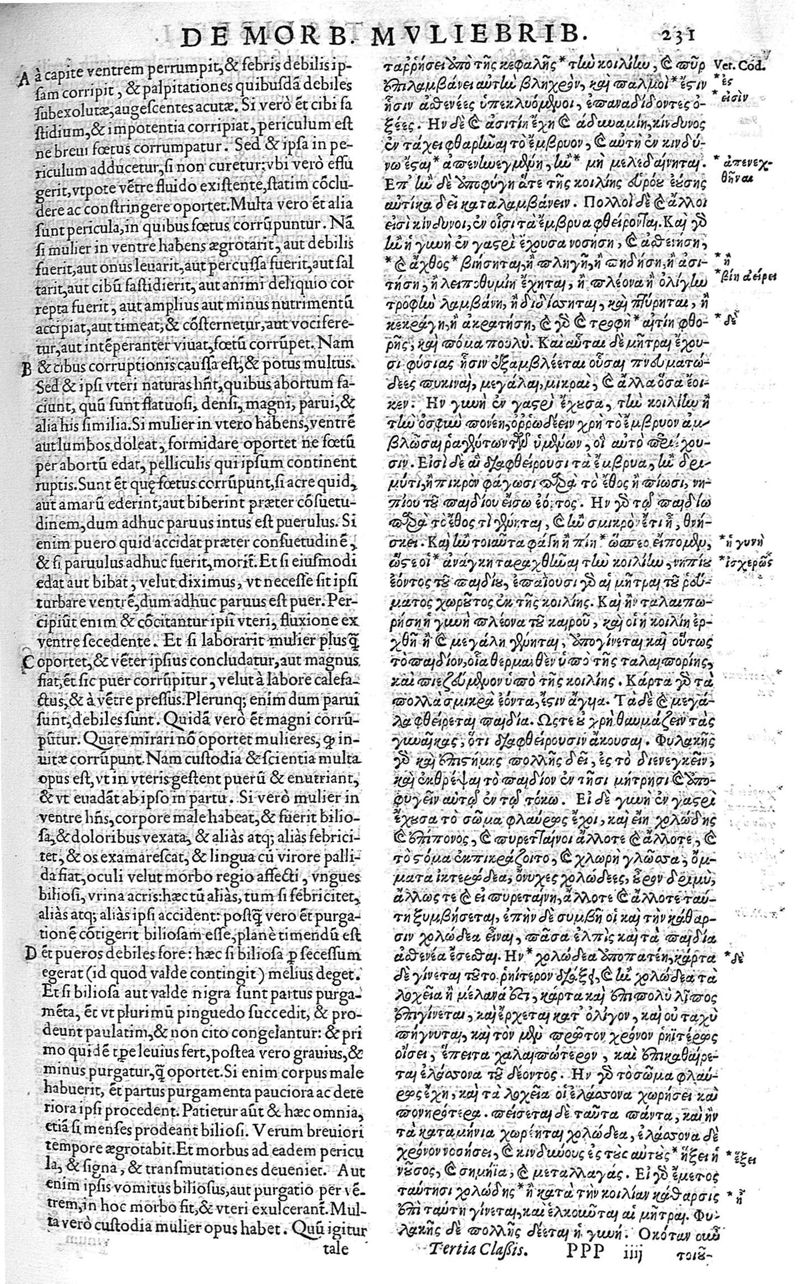 DE MORB. MVLIEBRIB. 231
A à capite ventrem perrumpit, & febris debilis ip-
sam corripit, & palpitationes quibusdā debiles
subexolutæ, augescentes acutæ. Si verò et cibi fa
stidium, & impotentia corripiat, periculum est
ne breui fœtus corrumpatur. Sed & ipsa in pe-
riculum adducetur, si non curetur: vbi verò effu
gerit, vtpote vētre fluido existente, statim cōclu-
dere ac constringere oportet. Multa vero ēt alia
sunt pericula, in quibus fœtus corrūpuntur. Nā
si mulier in ventre habens ægrotarit, aut debilis
fuerit, aut onus leuarit, aut percussa fuerit, aut sal
tarit, aut cibū fastidierit, aut animi deliquio cor
repta fuerit, aut amplius aut minus nutrimentū
accipiat, aut timeat, & cōsternetur, aut vocifere-
tur, aut intēperanter viuat, fœtū corrūpet. Nam
B & cibus corruptionis caussa est, & potus multus.
Sed & ipsi vteri naturas hñt, quibus abortum fa-
ciunt, quū sunt flatuosi, densi, magni, parui, &
alia his similia. Si mulier in vtero habens, ventrē
aut lumbos doleat, formidare oportet ne fœtū
per abortū edat, pelliculis qui ipsum continent
ruptis. Sunt et quę fœtus corrūpunt, si acre quid,
aut amarū ederint, aut biberint præter cōsuetu-
dinem, dum adhuc paruus intus est puerulus. Si
enim puero quid accidat præter consuetudinē,
& si paruulus adhuc fuerit, morit̃. Et si eiusmodi
edat aut bibat, velut diximus, vt necesse sit ipsi
turbare ventrē, dum adhuc paruus est puer. Per-
cipiūt enim & cōcitantur ipsi vteri, fluxione ex
ventre secedente. Et si laborarit mulier plusq̃
C oportet, & vēter ipsius concludatur, aut magnus
fiat, et sic puer corrūpitur, velut à labore calefa-
ctus, & à vētre pressus. Plerunq; enim dum parui
sunt, debiles sunt. Quidā verò ēt magni corrū-
pūtur. Quare mirari nō oportet mulieres, ꝙ in-
uitæ corrūpunt. Nam custodia & scientia multa
opus est, vt in vteris gestent puerū & enutriant,
& vt euadant ab ipso in partu. Si verò mulier in
ventre hñs, corpore male habeat, & fuerit bilio-
sa, & doloribus vexata, & aliàs atq; aliàs febrici-
tet, & os examarescat, & lingua cū virore palli-
da fiat, oculi velut morbo regio affecti, vngues
biliosi, vrina acris: hæc tū aliàs, tum si febricitet,
aliàs atq; aliàs ipsi accident: postq̃ vero ēt purga-
tionē cōtigerit biliosam esse, planè timendū est
D ēt pueros debiles fore: hæc si biliosa p secessum
egerat (id quod valde contingit) melius deget.
Et si biliosa aut valde nigra sunt partus purga-
mēta, ēt vt plurimū pinguedo succedit, & pro-
deunt paulatim, & non cito congelantur: & pri
mo quidē tp̃e leuius fert, postea vero grauius, &
minus purgatur, q̃ oportet. Si enim corpus male
habuerit, ēt partus purgamenta pauciora ac dete
riora ipsi procedent. Patietur aūt & hæc omnia,
etiā si menses prodeant biliosi. Verum breuiori
tempore ægrotabit. Et morbus ad eadem pericu
la, & signa, & transmutationes deueniet. Aut
enim ipsis vomitus biliosus, aut purgatio per vē-
trem, in hoc morbo fit, & vteri exulcerant. Mul-
ta verò custodia mulier opus habet. Quū igitur
tale
ταῤῥήσει ὑπὸ τῆς κεφαλῆς * τὴν κοιλίην, καὶ πῦρ
ἐπιλαμβάνει αὐτὴν βληχρὸν, καὶ παλμοὶ * ἔςιν
ᾗσιν ἀσθενέες ὑπεκλυόμενοι, ἐπαναδίδοντες ὀ-
ξέες. Ην δὲ καὶ ἀσιτίη ἔχῃ καὶ ἀδυναμίη, κίνδυνος
ἐν τάχει φθαρῆναι τὸ ἔμβρυον, καὶ αὐτὴ ἐν κινδύ-
νῳ ἔςαι * ἀπενεωεγμένη, ἢν μὴ μελεδαίνηται.
Επὴν δὲ ὑποφύγῃ ἅτε τῆς κοιλίης ὑγρῆς ἐούσης
αὐτίκα δεῖ καταλαμβάνειν. Πολλοὶ δὲ καὶ ἄλλοι
εἰσὶ κίνδυνοι, ἐν οἷσι τὰ ἔμβρυα φθείρονται. Καὶ γὰρ
ἢν ἡ γυνὴ ἐν γαςρὶ ἔχουσα νοσήσῃ, καὶ ἀσθενήσῃ,
* καὶ ἄχθος * βιήσηται, ἢ πληγῇ, ἢ πηδήσῃ, ἢ ἀσι-
τήσῃ, ἢ λειποθυμίῃ ἔχηται, ἢ πλέονα ἢ ὀλίγην
τροφὴν λαμβάνῃ, ἢ διδίσσηται, καὶ πτύρηται, ἢ
κεκράγῃ, ἢ ἀκρατήσῃ, καὶ γὰρ καὶ τροφὴ * αἰτίη φθο-
ρῆς, καὶ πόμα πουλύ. Καὶ αὗται δὲ μῆτραι ἔχου-
σι φύσιας ᾗσιν ἐξαμβλέεται οὖσαι πνευματώ-
δεες πυκιναὶ, μεγάλαι, μικραὶ, καὶ ἄλλα ὅσα ἔοι-
κεν. Ην γυνὴ ἐν γαςρὶ ἔχουσα, τὴν κοιλίην ἢ
τὴν ὀσφὺν πονέῃ, ὀῤῥωδέειν χρὴ τὸ ἔμβρυον ἀμ-
βλῶσαι ῥαγέντων τῶν ὑμένων, οἳ αὐτὸ περιέχου-
σιν. Εἰσὶ δὲ αἳ διαφθείρουσι τὰ ἔμβρυα, ἢν δρι-
μύ τι, ἢ πικρὸν φάγωσι παρὰ τὸ ἔθος ἢ πίωσι, νη-
πίου τοῦ παιδίου εἴσω ἐόντος. Ην γὰρ τῷ παιδίῳ
παρὰ τὸ ἔθος τι γένηται, καὶ ἢν σμικρὸν ἔτι ᾖ, θνή-
σκει. Καὶ ἢν τοιαῦτα φάγῃ ἢ πίῃ * ὥσπερ εἴπομεν,
ὥς οἱ * ἀνάγκη ταραχθῆναι τὴν κοιλίην, νηπίου
ἐόντος τοῦ παιδίου, ἐπαΐουσι γὰρ αἱ μῆτραι τοῦ ῥού-
ματος χωρεῦντος ἐκ τῆς κοιλίης. Καὶ ἢν ταλαιπω-
ρήσῃ ἡ γυνὴ πλέονα τοῦ καιροῦ, καὶ οἱ ἡ κοιλίη ἐρ-
χθῇ ἢ καὶ μεγάλη γένηται, ὑπογίνεται καὶ οὕτως
τὸ παιδίον, οἷα θερμανθὲν ὑπὸ τῆς ταλαιπωρίης,
καὶ πιεζόμενον ὑπὸ τῆς κοιλίης. Κάρτα γὰρ τὰ
πολλὰ σμικρὰ ἐόντα, ἔςιν ἄγυια. Τὰ δὲ καὶ μεγά-
λα φθείρεται παιδία. Ωςτε οὐ χρὴ θαυμάζειν τὰς
γυναῖκας, ὅτι διαφθείρουσιν ἄκουσαι. Φυλακῆς
γὰρ καὶ ἐπιςήμης πολλῆς δεῖ, ἐς τὸ διενεγκεῖν,
καὶ ἐκθρέψαι τὸ παιδίον ἐν τῇσι μήτρῃσι καὶ ἀπο-
φυγεῖν αὐτῷ ἐν τῷ τόκῳ. Εἰ δὲ γυνὴ ἐν γαςρὶ
ἔχουσα τὸ σῶμα φλαῦρως ἔχοι, καὶ εἴη χολώδης
καὶ ἐπίπονος, καὶ πυρεταίνοι ἄλλοτε καὶ ἄλλοτε, καὶ
τὸ ςόμα ἐκπικράζοιτο, καὶ χλωρὴ γλῶσσα, ὄμ-
ματα ἰκτερώδεα, ὄνυχες χολώδεες, οὖρον δριμὺ,
ἄλλως τε καὶ εἰ πυρεταίνῃ, ἄλλοτε καὶ ἄλλοτε ταύ-
τῃ ξυμβήσεται, ἐπὴν δὲ συμβῇ οἱ καὶ τὴν κάθαρ-
σιν χολώδεα εἶναι, πᾶσα ἐλπὶς καὶ τὰ παιδία
ἀσθενέα ἔσεσθαι. Ην * χολώδεα ὑποπατέῃ, κάρτα
δὲ γίνεται τοῦτο, ῥηΐτερον διάξει, καὶ ἢν χολώδεα τὰ
λοχεῖα ἢ μέλανα ἐπὶ, κάρτα καὶ ἐπιπολὺ λίπος
ἐπιγίνεται, καὶ ἔρχεται κατ' ὀλίγον, καὶ οὐ ταχὺ
πήγνυται, καὶ τὸν μὲν πρῶτον χρόνον ῥηϊτέρως
οἴσει, ἔπειτα χαλεπώτερον, καὶ ἐπικαθαίρε-
ται ἐλάσσονα τοῦ δέοντος. Ην γὰρ τὸ σῶμα φλαύ-
ρως ἔχῃ, καὶ τὰ λοχεῖα οἱ ἐλάσσονα χωρήσει καὶ
πονηρότερα. πείσεται δὲ ταῦτα πάντα, καὶ ἢν
τὰ καταμήνια χωρέηται χολώδεα, ἐλάσσονα δὲ
χρόνον νοσήσει, καὶ κινδύνους ἐς τοὺς αὐτοὺς * ἥξει ἡ
νοῦσος, καὶ σημεῖα, καὶ μεταλλαγάς. Εἰ γὰρ ἔμετος
ταύτῃσι χολώδης * ἢ κατὰ τὴν κοιλίαν κάθαρσις
ἐπὶ ταύτῃ γίνεται, καὶ ἑλκοῦνται αἱ μῆτραι. Φυ-
λακῆς δὲ πολλῆς δέεται ἡ γυνή. Οκόταν οὖν
Tertia Classis. PPP iiij τοιοῦ-
Ver. Cód.
* ἐς
* εἰσιν
* ἀπενεχ-
θῆναι
* ἢ
* βίῃ ἀείρει
* δὲ
* ἡ γυνὴ
* ἰσχερῶς
* δὲ
* ἕξει
* ἢ